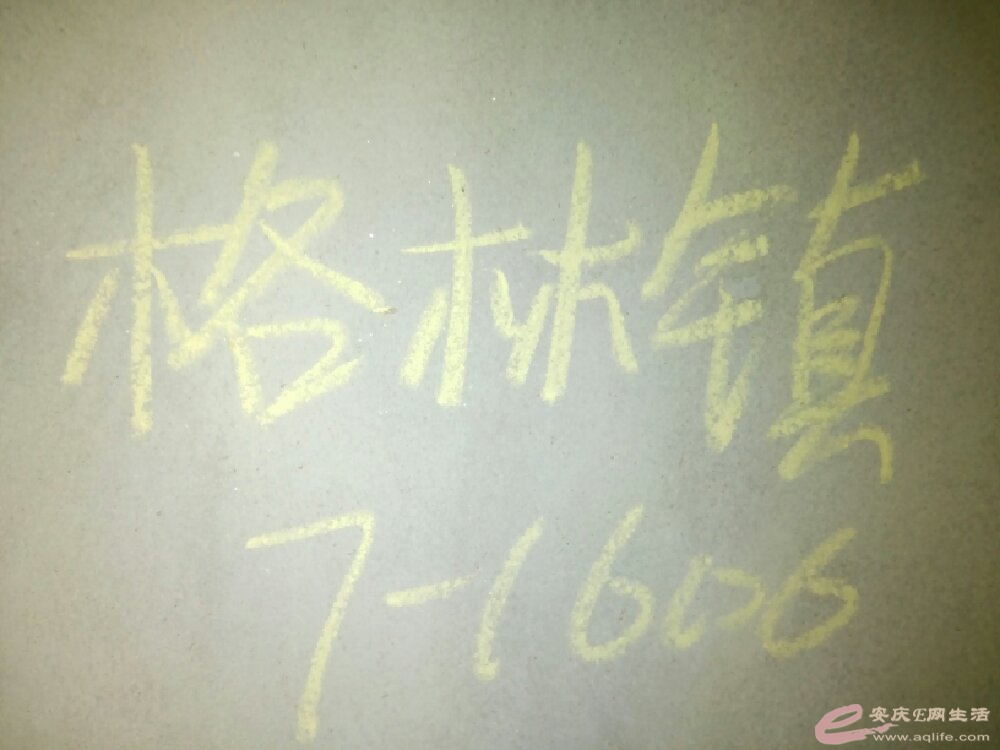 格林镇
7-1606
安庆E网生活
www.aqlife.com